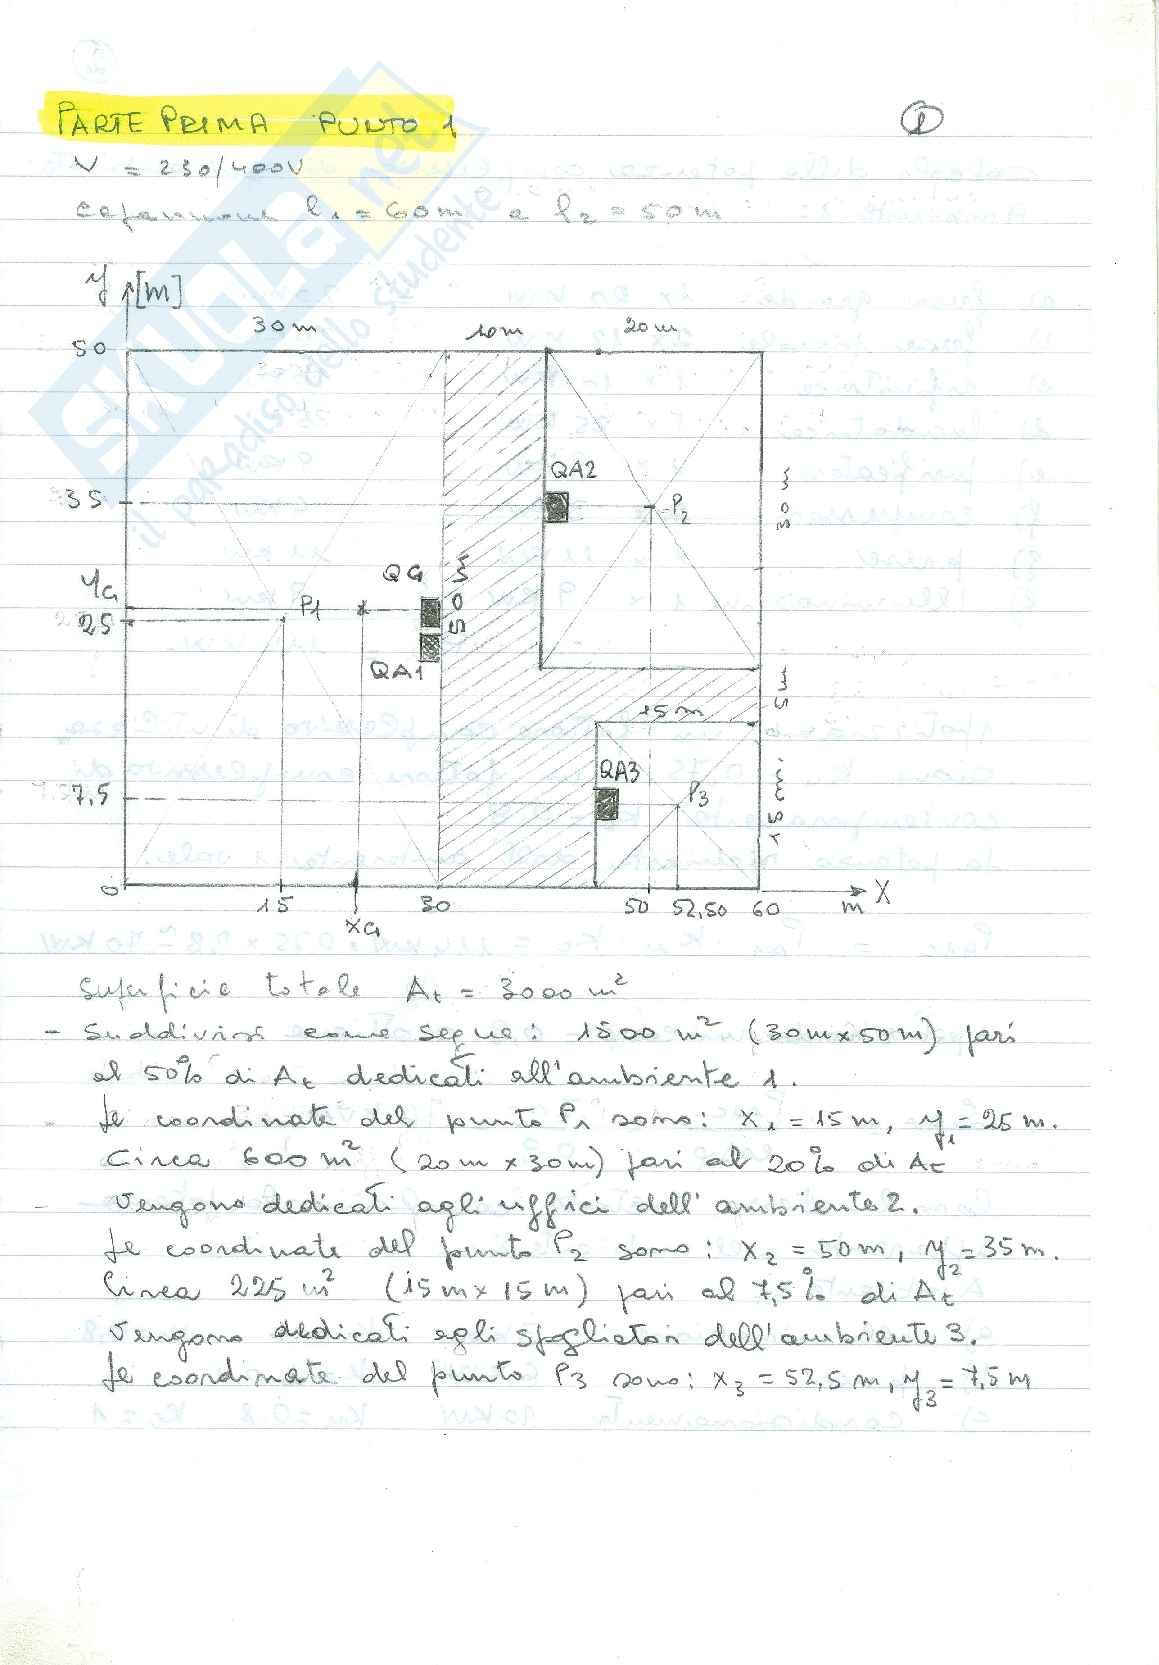 PARTE PRIMA PUNTO 1
1
V = 230/400V
capannone l1 = 60m e l2 = 50m
y [m]
30m
10m
20m
50
QA2
35
P2
30 m
yG
QG
50 m
P1
25
QA1
5m
15m
QA3
7,5
P3
15m.
0
15
30
50
52,50
60
m
X
xG
Superficie totale At = 3000 m²
- Suddivisi come segue: 1500 m² (30m x 50m) pari
al 50% di At dedicati all'ambiente 1.
- Le coordinate del punto P1 sono: x1 = 15m, y1 = 25m.
Circa 600 m² (20m x 30m) pari al 20% di At
- vengono dedicati agli uffici dell'ambiente 2.
Le coordinate del punto P2 sono: x2 = 50m, y2 = 35m.
Circa 225 m² (15m x 15m) pari al 7,5% di At
vengono dedicati agli spogliatoi dell'ambiente 3.
Le coordinate del punto P3 sono: x3 = 52,5m, y3 = 7,5m
SKUOLA.net
il paradiso dello studente